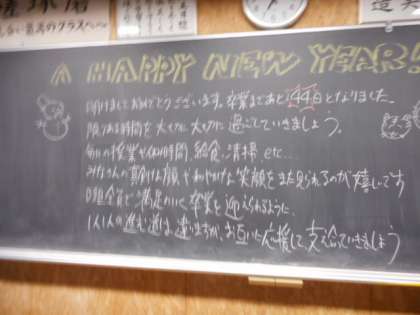 A HAPPY NEW YEAR!
明けましておめでとうございます。卒業まであと44日となりました。
残りある時間を大切に大切に過ごしていきましょう。
毎日の授業や休み時間、給食、清掃 etc...
みなさんの真剣な顔やさわやかな笑顔をまた見られるのが嬉しいです
全員で満足のいく卒業を迎えられるように、
1人1人の進む道は違いますが、お互いに応援して、支え合っていきましょう